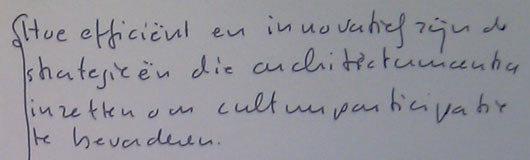 Hoe efficiënt en innovatief zijn de
strategieën die architectuurcentra
inzetten om cultuurparticipatie
te bevorderen.